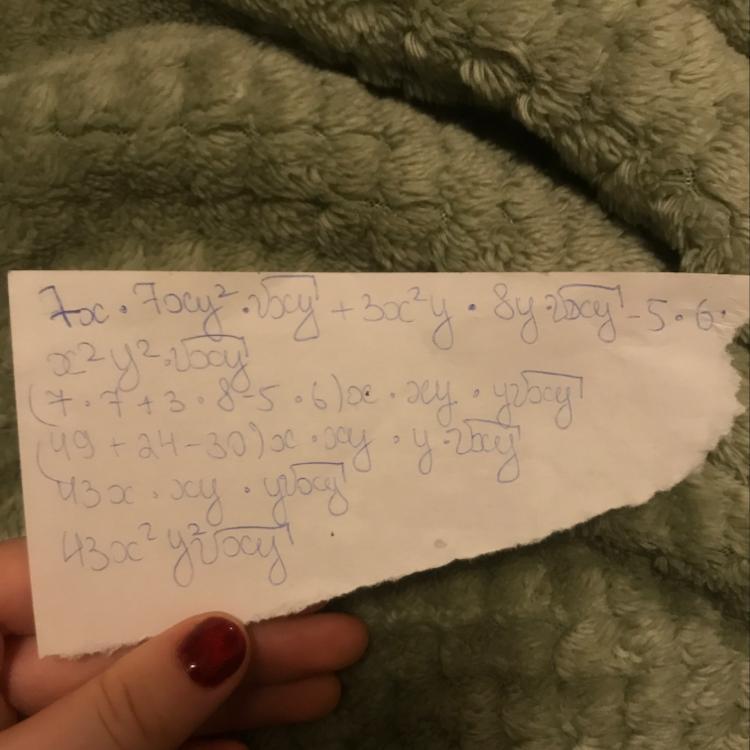 7x · 7xy² · √xy + 3x²y · 8y √xy - 5 · 6 ·
x²y² · √xy
(7 · 7 + 3 · 8 - 5 · 6)x · xy · y√xy
(49 + 24 - 30)x · xy · y · √xy
43x · xy · y√xy
43x²y²√xy